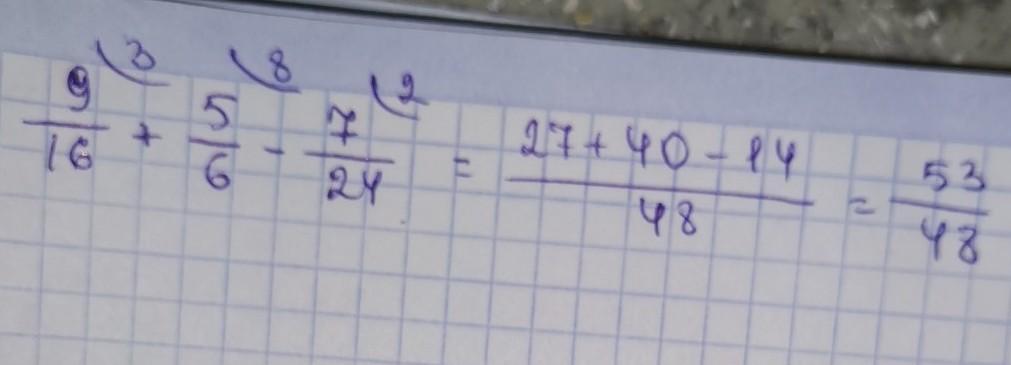 9/16 ⁽³ + 5/6 ⁽⁸ - 7/24 ⁽² = (27 + 40 - 14)/48 = 53/48